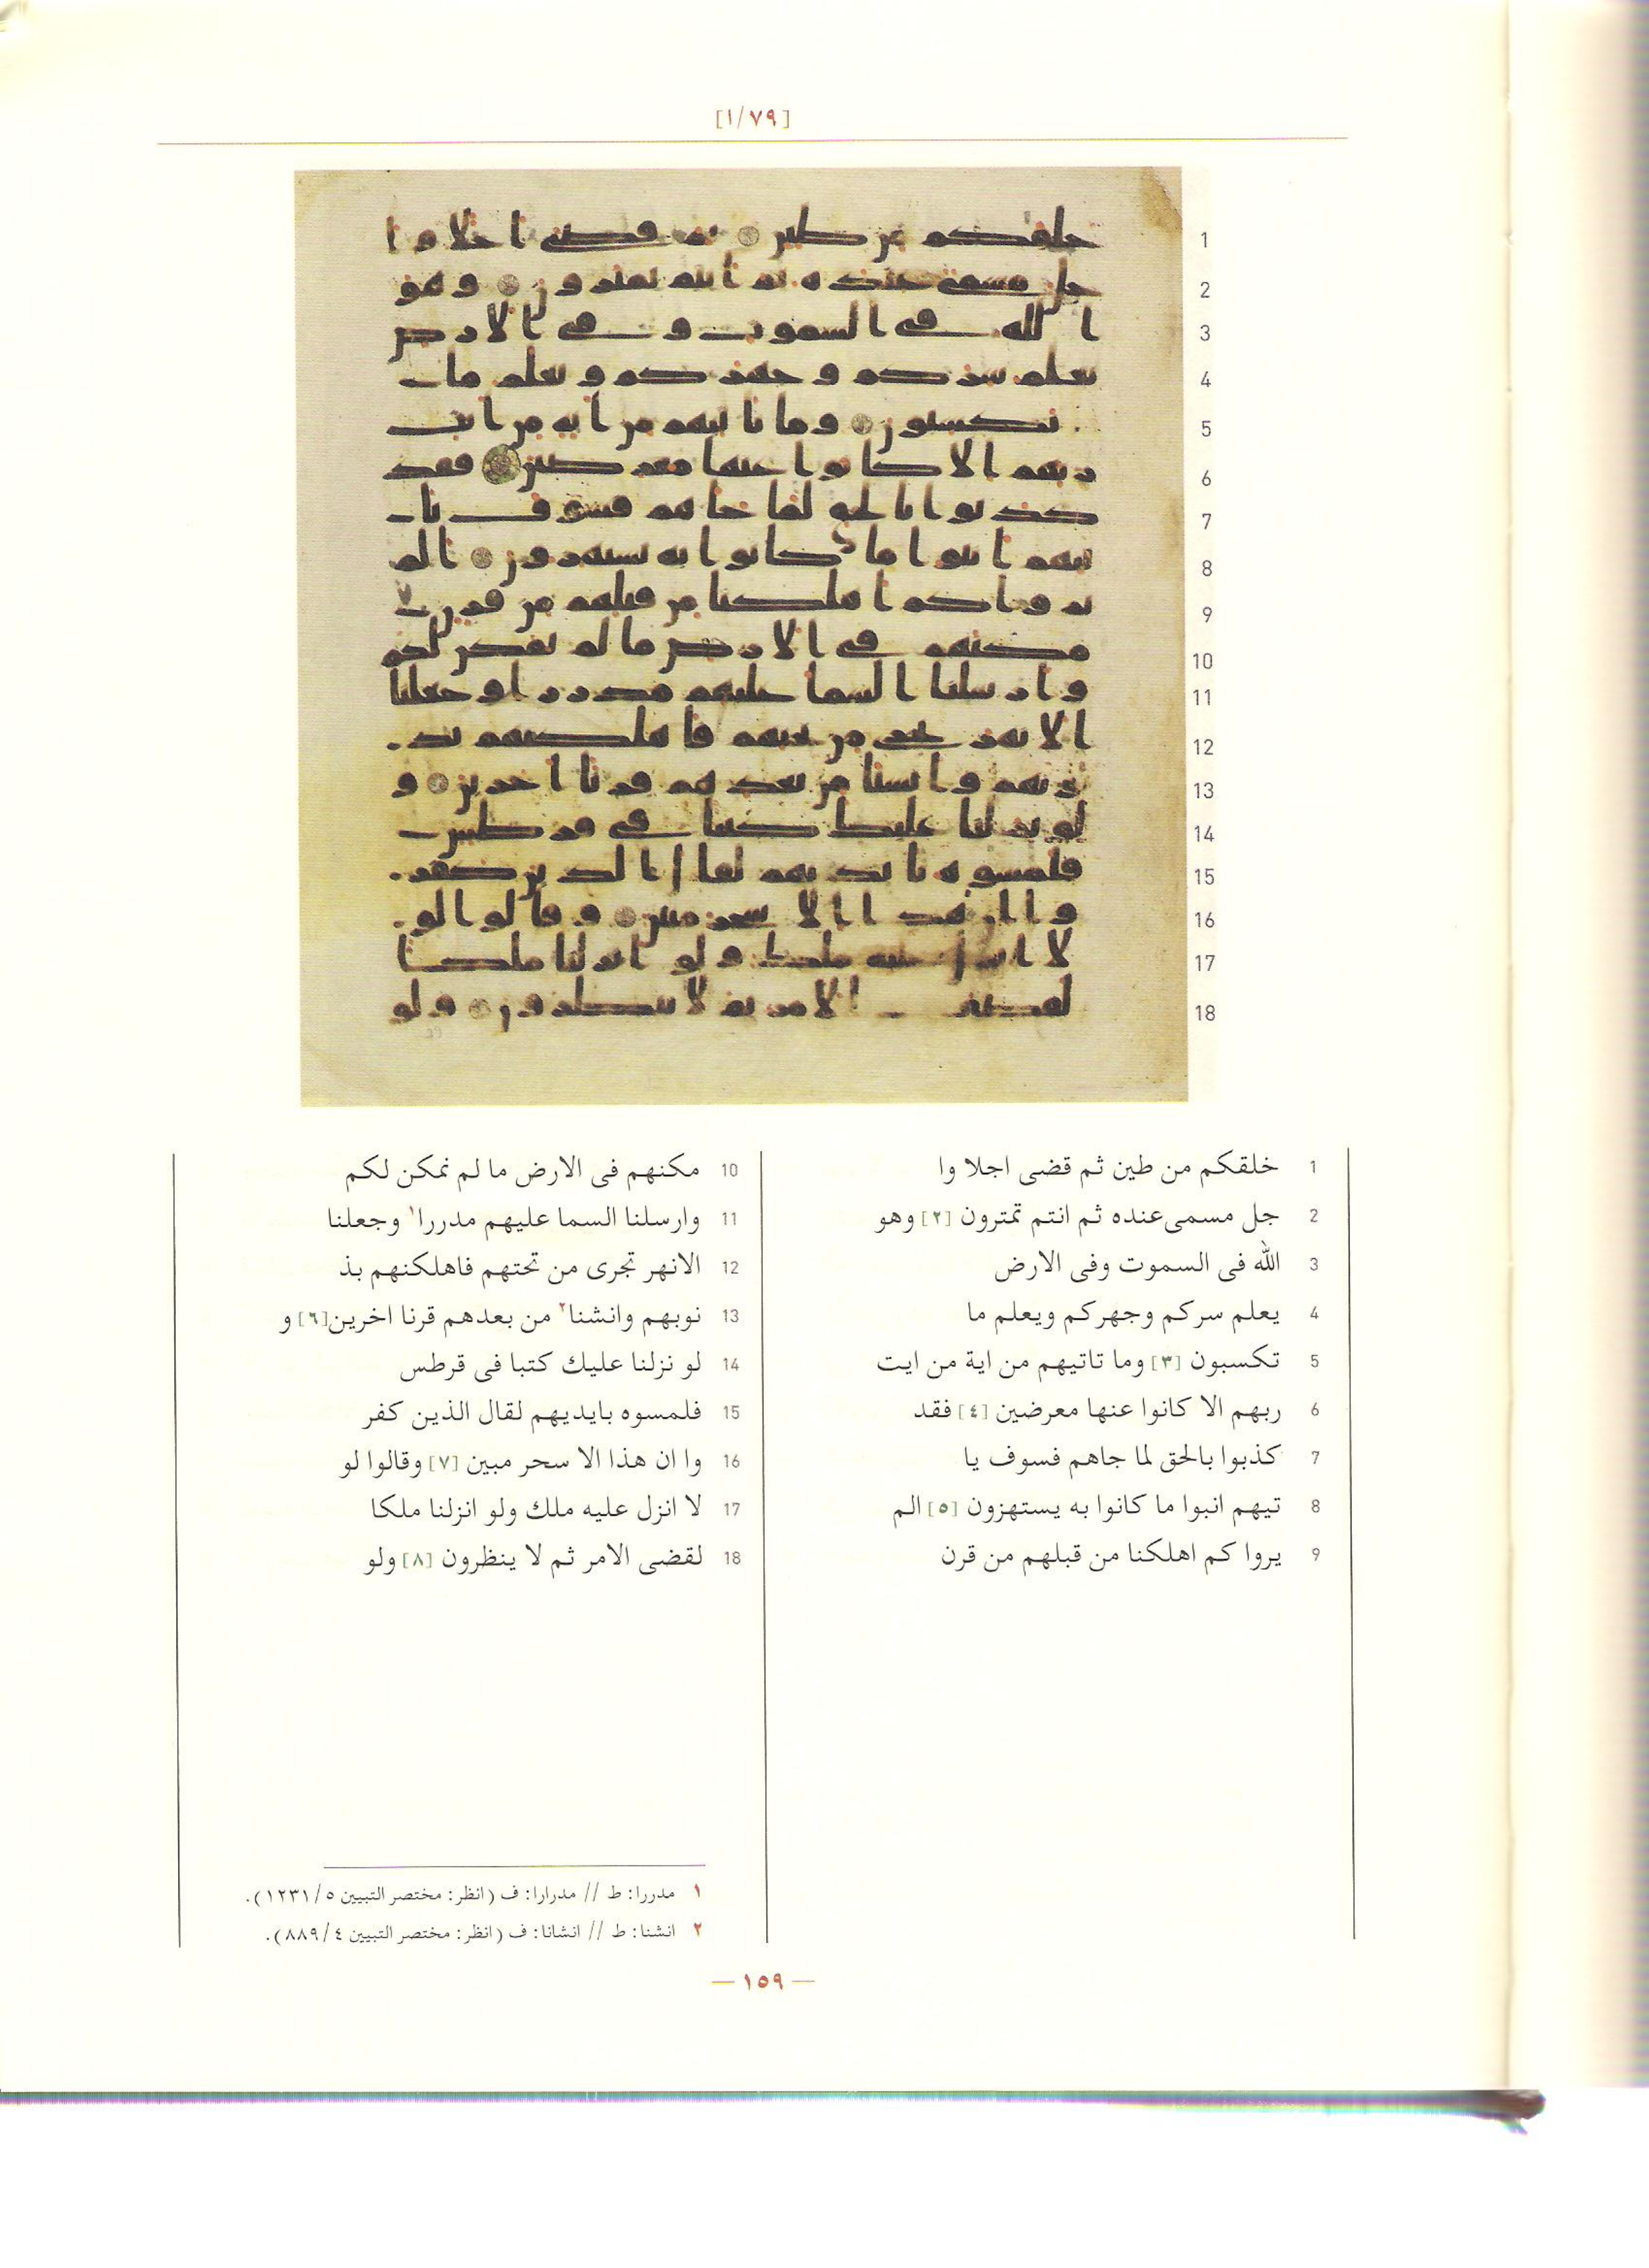 [١/٧٩]
1 خلقكم من طين ثم قضى اجلا وا
2 جل مسمى عنده ثم انتم تمترون [٢] وهو
3 الله فى السموت وفى الارض
4 يعلم سركم وجهركم ويعلم ما
5 تكسبون [٣] وما تاتيهم من اية من ايت
6 ربهم الا كانوا عنها معرضين [٤] فقد
7 كذبوا بالحق لما جاهم فسوف يا
8 تيهم انبوا ما كانوا به يستهزون [٥] الم
9 يروا كم اهلكنا من قبلهم من قرن
10 مكنهم فى الارض ما لم نمكن لكم
11 وارسلنا السما عليهم مدررا١ وجعلنا
12 الانهر تجرى من تحتهم فاهلكنهم بذ
13 نوبهم وانشنا٢ من بعدهم قرنا اخرين[٦] و
14 لو نزلنا عليك كتبا فى قرطس
15 فلمسوه بايديهم لقال الذين كفر
16 وا ان هذا الا سحر مبين [٧] وقالوا لو
17 لا انزل عليه ملك ولو انزلنا ملكا
18 لقضى الامر ثم لا ينظرون [٨] ولو
١ مدررا: ط // مدرارا: ف (انظر: مختصر التبيين ٥/١٢٣١).
٢ انشنا: ط // انشانا: ف (انظر: مختصر التبيين ٤/٨٨٩).
— ١٥٩ —